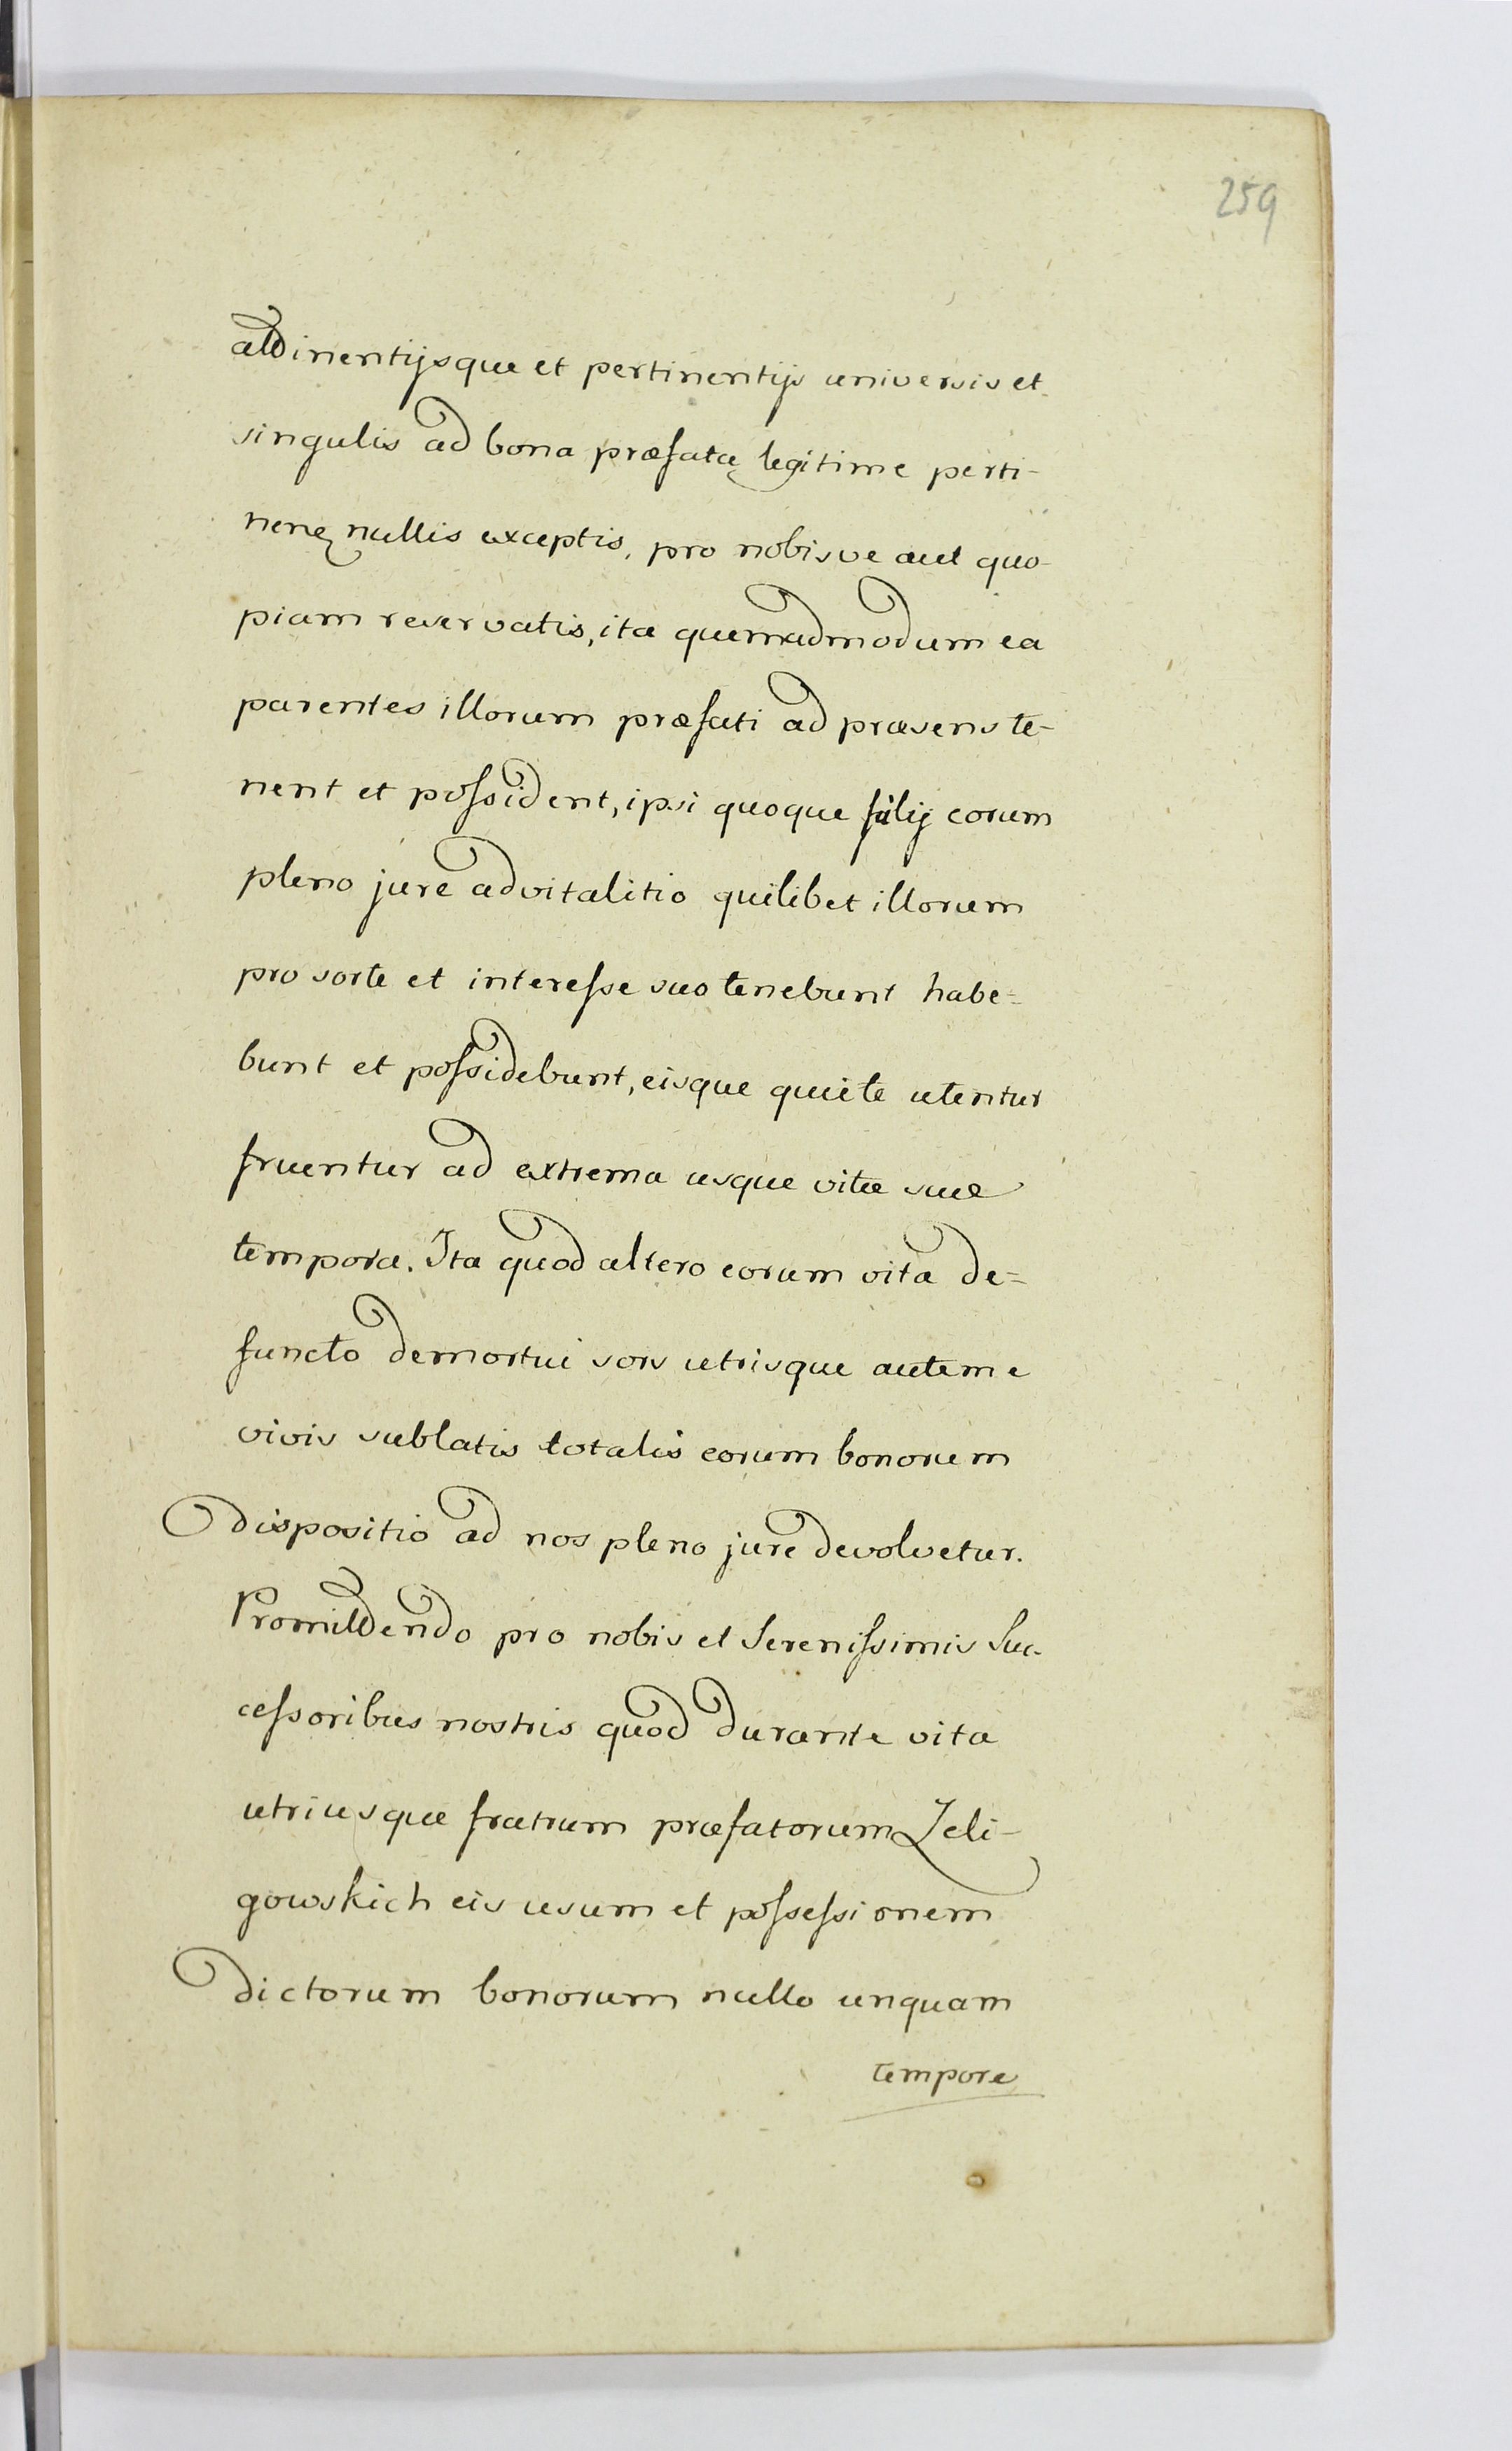 259
attinentijsque et pertinentijs universis et
singulis ad bona præfata legitime perti-
nen nullis exceptis, pro nobisve aut quo-
piam reservatis, ita quemadmodum ea
parentes illorum præfati ad præsens te-
nent et possident, ipsi quoque filij eorum
pleno jure advitalitio quilibet illorum
pro sorte et interesse suo tenebunt habe=
bunt et possidebunt, eisque quiete utentur
fruentur ad extrema usque vitæ suæ
tempora. Ita quod altero eorum vita de=
functo demortui sors utrisque autem e
vivis sublatis totalis eorum bonorum
dispositio ad nos pleno jure devolvetur.
Promittendo pro nobis et Serenissimis Suc-
cessoribus nostris quod durante vita
utriusque fratrum præfatorum Zeli-
gowskich eis usum et possessionem
dictorum bonorum nullo unquam
tempore